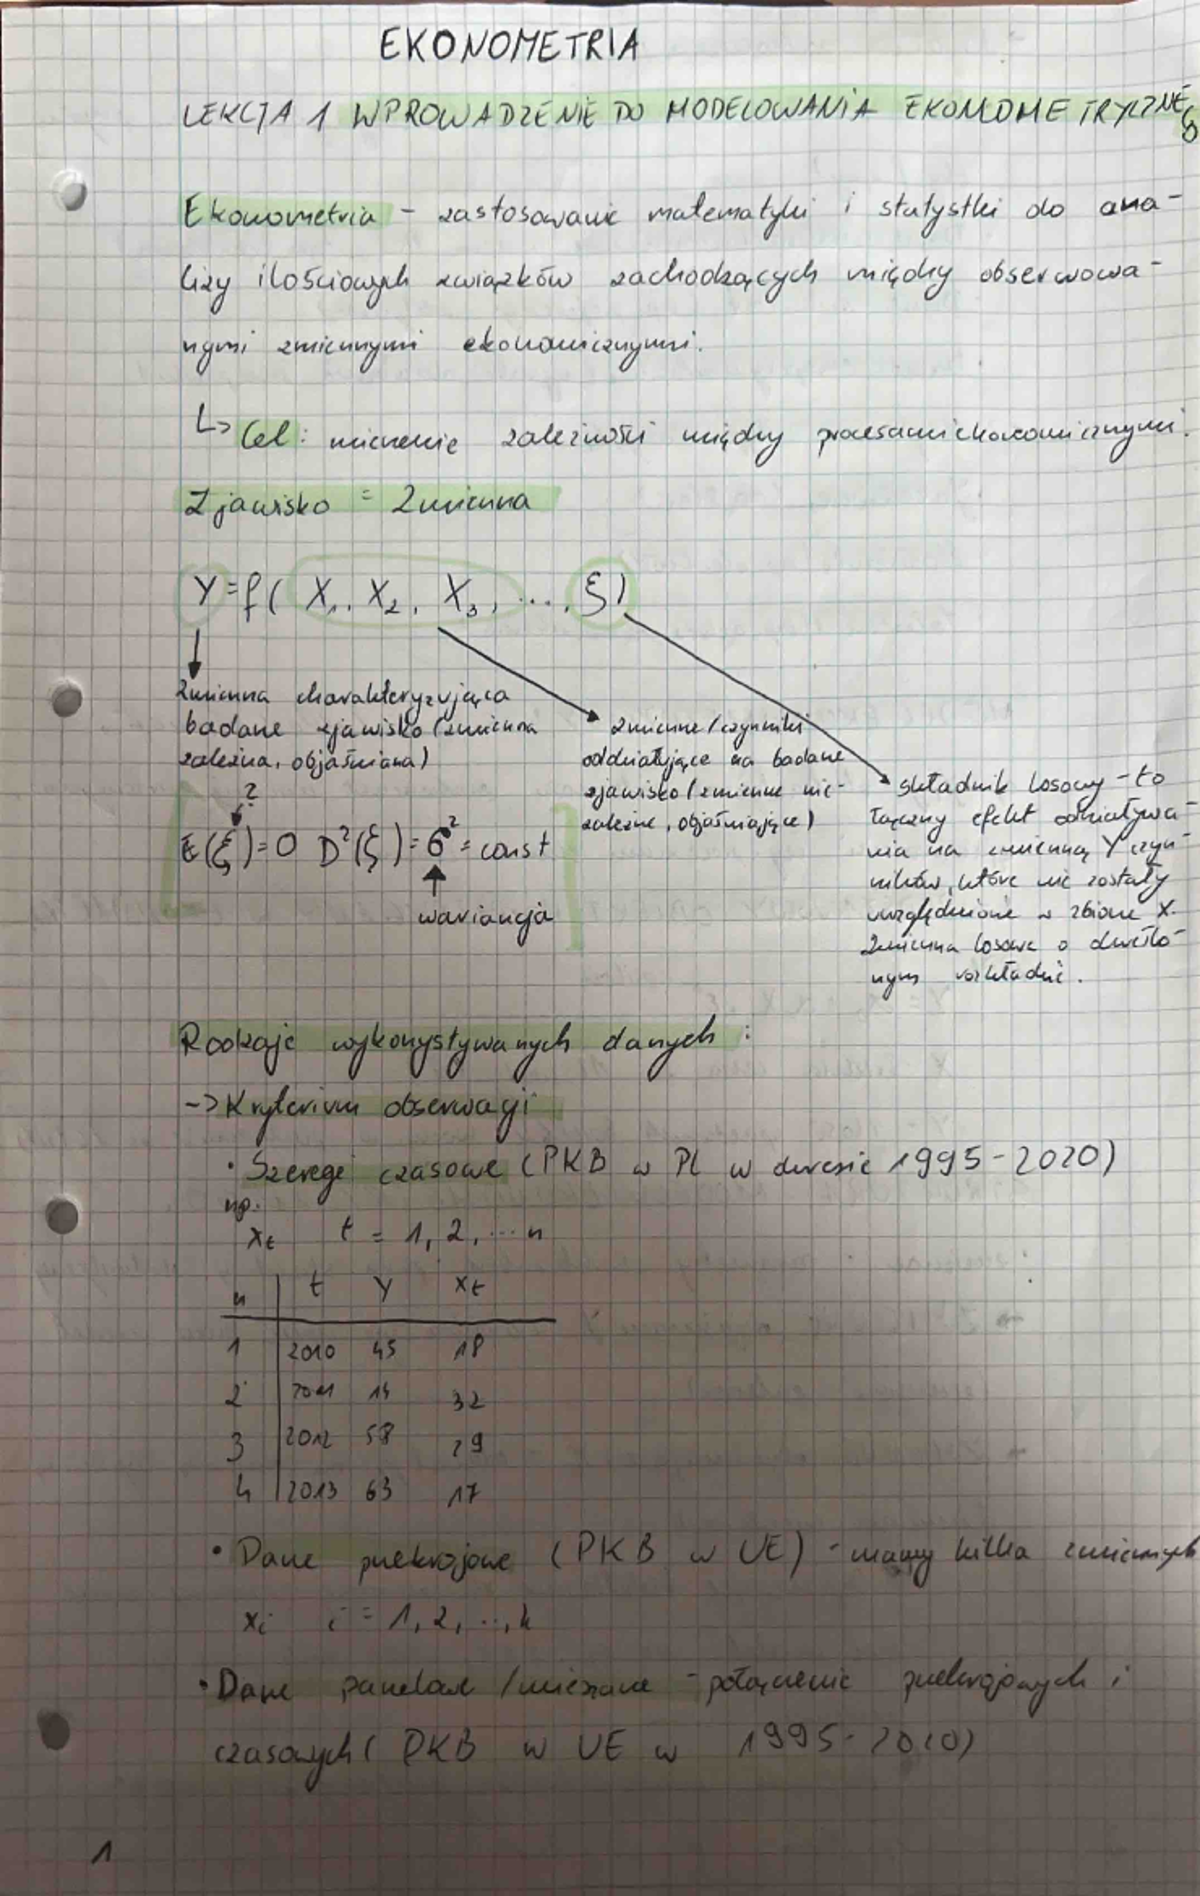 EKONOMETRIA
LEKCJA 1 WPROWADZENIE DO MODELOWANIA EKONOMETRYCZNEG
O
Ekonometria - zastosowanie matematyki i statystki do ana-
lizy ilościowych związków zachodzących między obserwowa-
nymi zmiennymi ekonomicznymi.
↳ Cel: mierzenie zależności między procesami ekonomicznymi.
Zjawisko = Zmienna
Y = f( X₁, X₂, X₃, ..., ξ)
zmienna charakteryzująca
badane zjawisko (zmienna
zależna, objaśniana)
zmienne/czynniki
oddziałujące na badane
zjawisko (zmienne nie-
zależne, objaśniające)
składnik losowy - to
łączny efekt oddziaływa-
nia na zmienną Y czyn-
ników, które nie zostały
uwzględnione w zbiorze X.
Zmienna losowa o określo-
nym rozkładzie.
?
E(ξ) = 0 D²(ξ) = σ² = const
wariancja
Rodzaje wykorzystywanych danych:
-> Kryterium obserwacji
• Szeregi czasowe (PKB w PL w okresie 1995-2020)
np.
xt t = 1, 2, ... n
n t Y xt
1 2010 45 18
2 2011 14 32
3 2012 58 29
4 2013 63 17
• Dane przekrojowe (PKB w UE) - mamy kilka zmiennych
xi i = 1, 2, .., k
• Dane panelowe /mieszane - połączenie przekrojowych i
czasowych ( PKB w UE w 1995-2020)
1